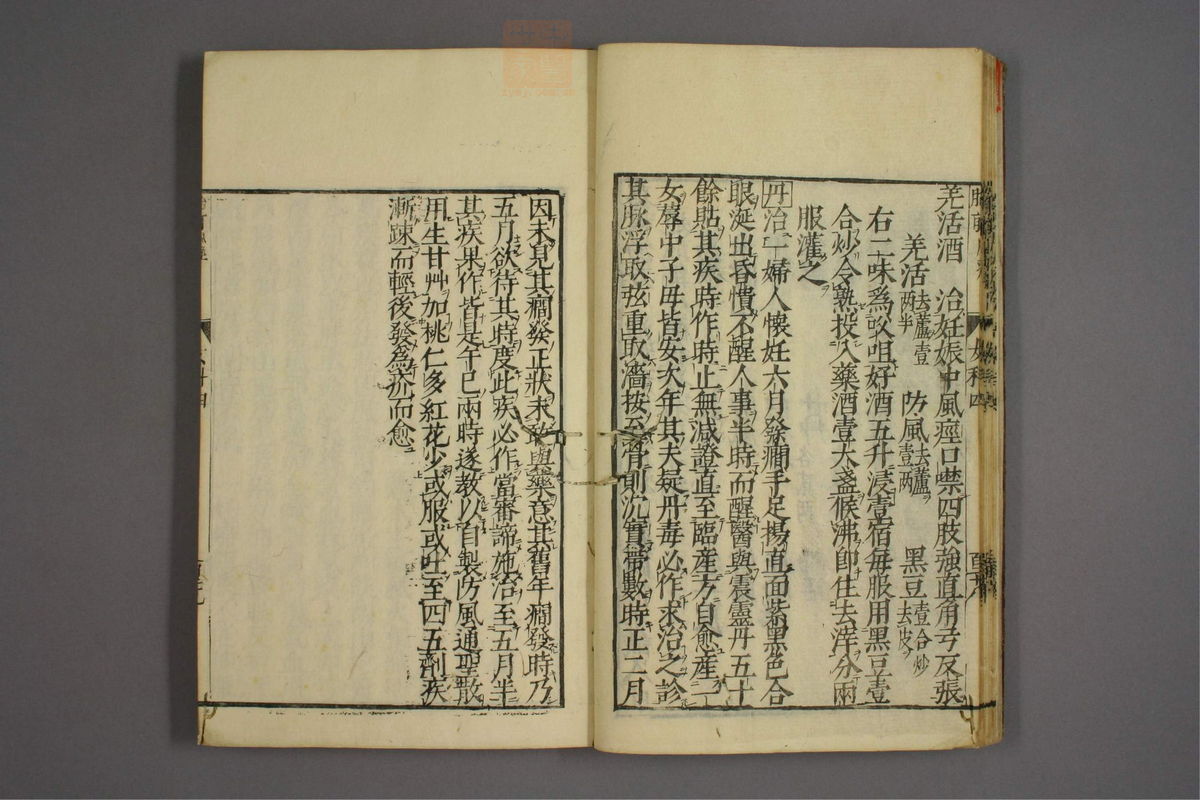 羌活酒　治妊娠中風痙口噤四肢強直角弓反張
羌活去蘆壹两半　防風去蘆壹两　黑豆壹合炒去皮
右二味爲㕮咀好酒五升浸壹宿每服用黑豆壹
合炒令熟投入藥酒壹大盞候沸即住去滓分兩
服灌之
丹治一婦人懷妊六月發癇手足揚直面紫黑色合
眼涎出昏憒不醒人事半時而醒醫與震靈丹五十
餘貼其疾時作時止無減證直至臨産方自愈産一
女蓐中子母皆安次年其夫疑丹毒必作求治之診
其脉浮取弦重取濇按至骨則沉實帶數時正二月
因未見其癇發正狀未敢與藥意其舊年癇發時乃
五月欲待其時度此疾必作當審諦施治至五月半
其疾果作皆是午巳兩時遂教以自製防風通聖散
用生甘艸加桃仁多紅花少或服或吐至四五劑疾
漸踈而輕後發爲疥而愈